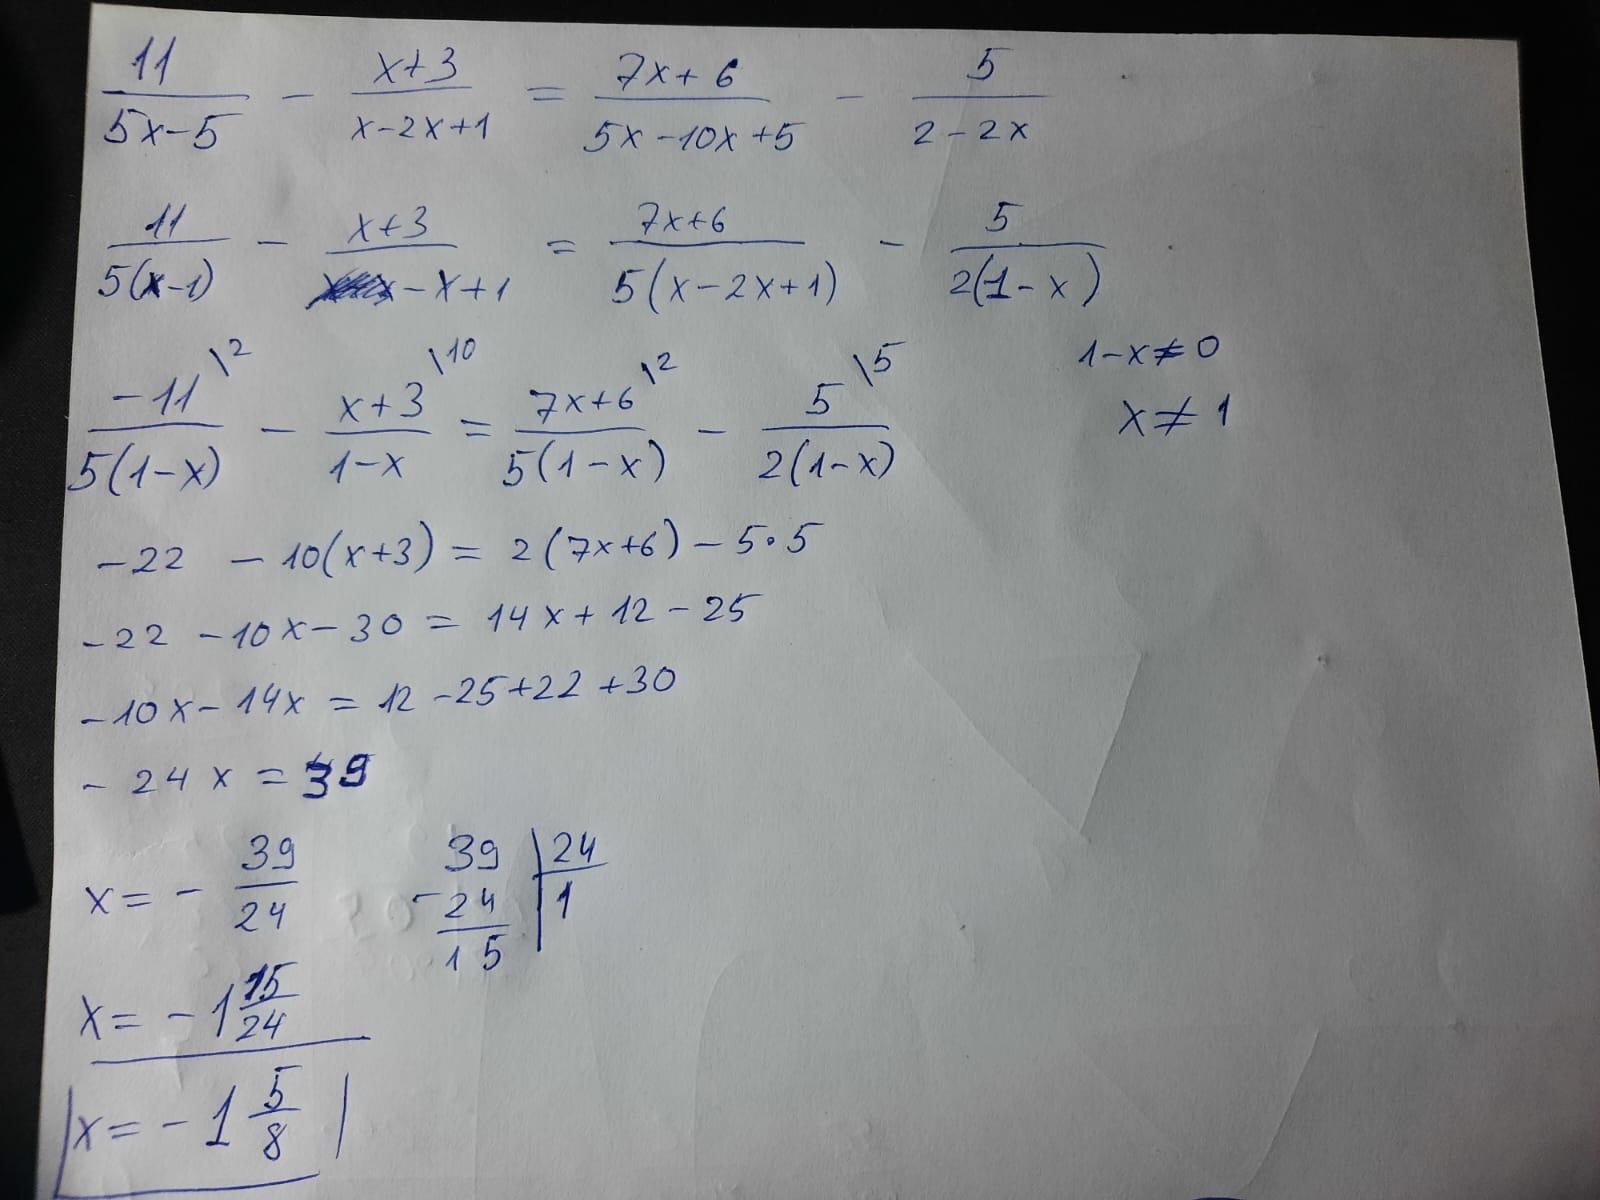 11/(5x-5) - (x+3)/(x-2x+1) = (7x+6)/(5x-10x+5) - 5/(2-2x)
11/(5(x-1)) - (x+3)/(-x+1) = (7x+6)/(5(x-2x+1)) - 5/(2(1-x))
-11\2/(5(1-x)) - (x+3)\10/(1-x) = (7x+6)\2/(5(1-x)) - 5\5/(2(1-x))
1-x≠0
x≠1
-22 - 10(x+3) = 2(7x+6) - 5·5
-22 - 10x - 30 = 14x + 12 - 25
-10x - 14x = 12 - 25 + 22 + 30
-24x = 39
x = - 39/24
39 | 24
-24 | 1
15
x = -1 15/24
x = -1 5/8